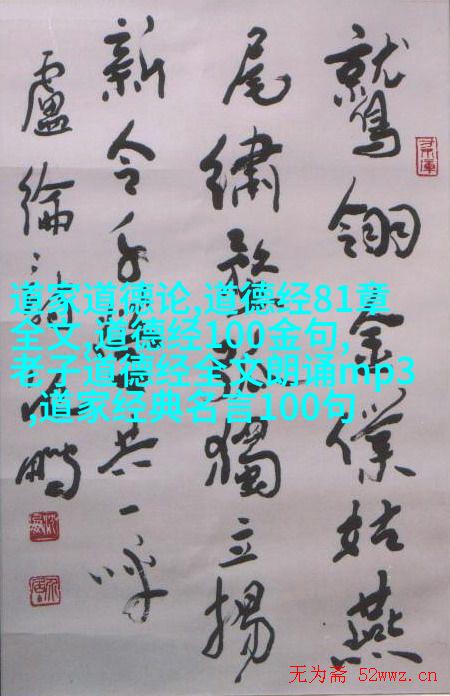 鷲翎金僕姑燕
尾繡蝥弧獨立揚
新令千營共一呼
盧綸詩鵬
道家道德论,道德经81章
全文,道德经100金句,
老子道德经全文朗诵mp3
,道家经典名言100句
无为斋 52wwz.cn